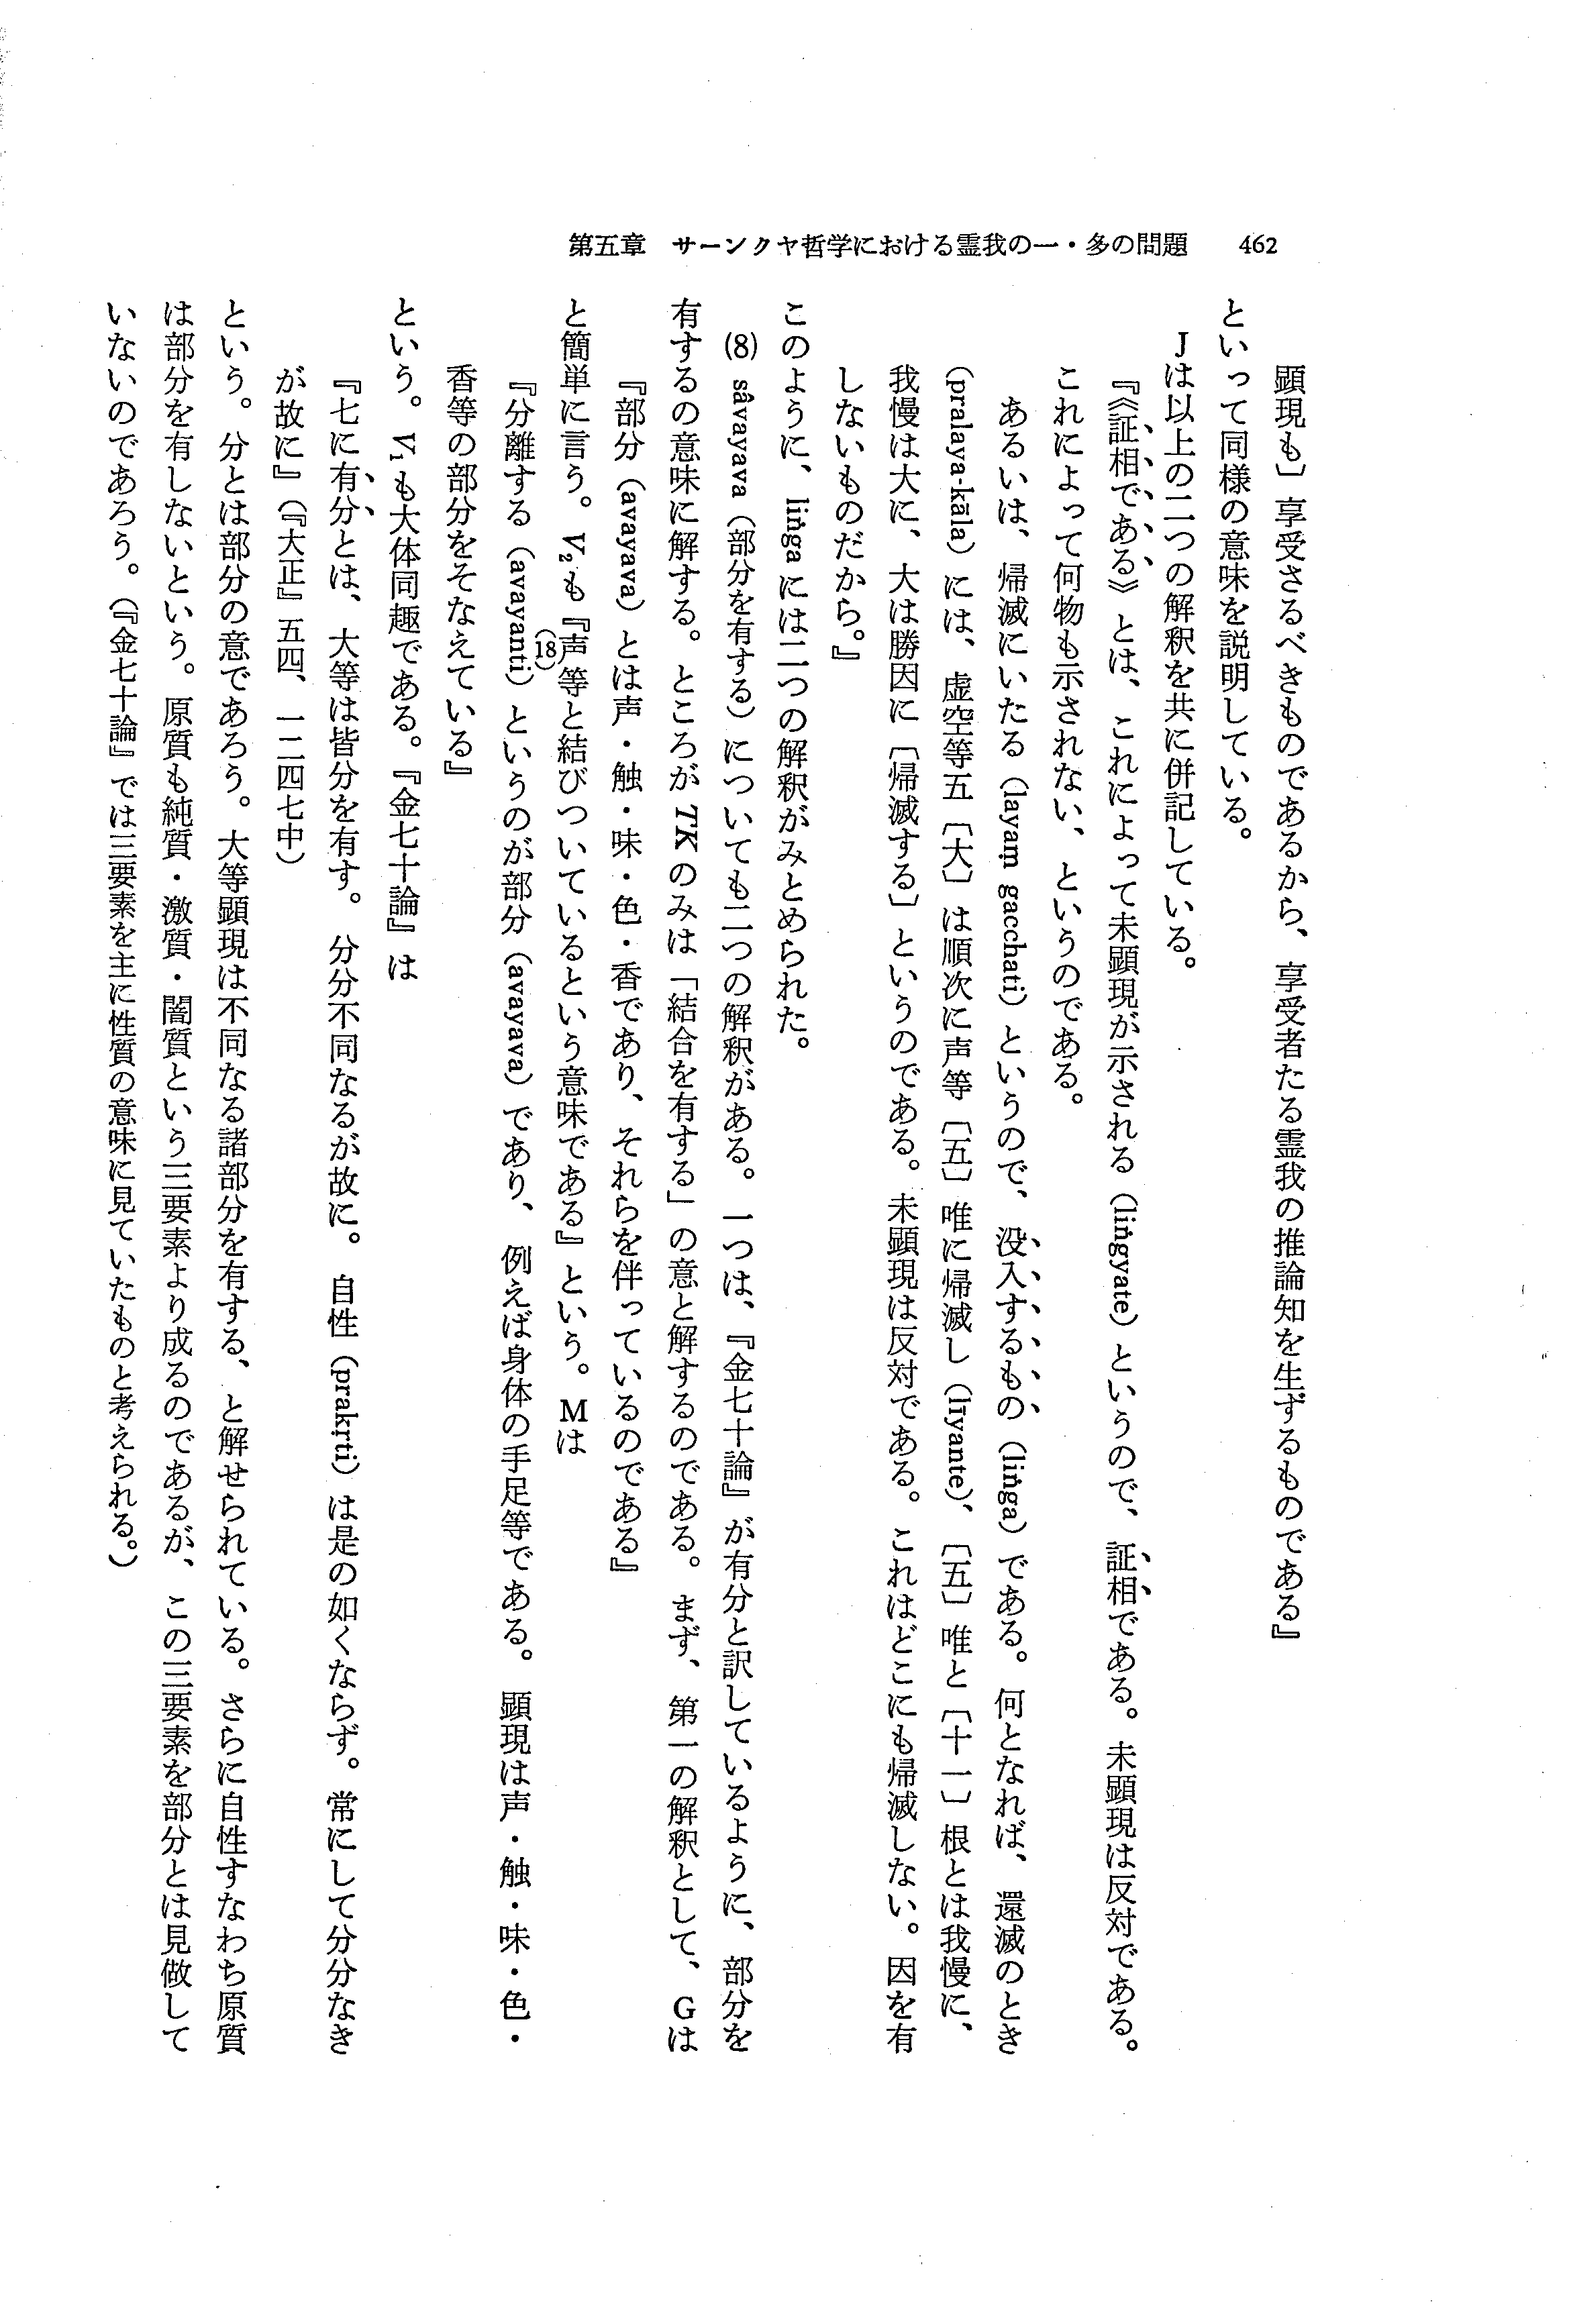 第五章　サーンクヤ哲学における霊我の一・多の問題　462
顕現も〕享受さるべきものであるから、享受者たる霊我の推論知を生ずるものである』
といって同様の意味を説明している。
Jは以上の二つの解釈を共に併記している。
『《証相である》とは、これによって未顕現が示される（liṅgyate）というので、証相である。未顕現は反対である。
これによって何物も示されない、というのである。
あるいは、帰滅にいたる（layaṃ gacchati）というので、没入するもの（liṅga）である。何となれば、還滅のとき
（pralaya-kāla）には、虚空等五〔大〕は順次に声等〔五〕唯に帰滅し（līyante）、〔五〕唯と〔十一〕根とは我慢に、
我慢は大に、大は勝因に〔帰滅する〕というのである。未顕現は反対である。これはどこにも帰滅しない。因を有
しないものだから。』
このように、liṅga には二つの解釈がみとめられた。
(8) sâvayava（部分を有する）についても二つの解釈がある。一つは、『金七十論』が有分と訳しているように、部分を
有するの意味に解する。ところが TK のみは「結合を有する」の意と解するのである。まず、第一の解釈として、Gは
『部分（avayava）とは声・触・味・色・香であり、それらを伴っているのである』
と簡単に言う。V₂も『声等と結びついているという意味である』という。Mは
(18)
『分離する（avayanti）というのが部分（avayava）であり、例えば身体の手足等である。顕現は声・触・味・色・
香等の部分をそなえている』
という。V₁も大体同趣である。『金七十論』は
『七に有分とは、大等は皆分を有す。分分不同なるが故に。自性（prakṛti）は是の如くならず。常にして分分なき
が故に』（『大正』五四、一二四七中）
という。分とは部分の意であろう。大等顕現は不同なる諸部分を有する、と解せられている。さらに自性すなわち原質
は部分を有しないという。原質も純質・激質・闇質という三要素より成るのであるが、この三要素を部分とは見做して
いないのであろう。（『金七十論』では三要素を主に性質の意味に見ていたものと考えられる。）